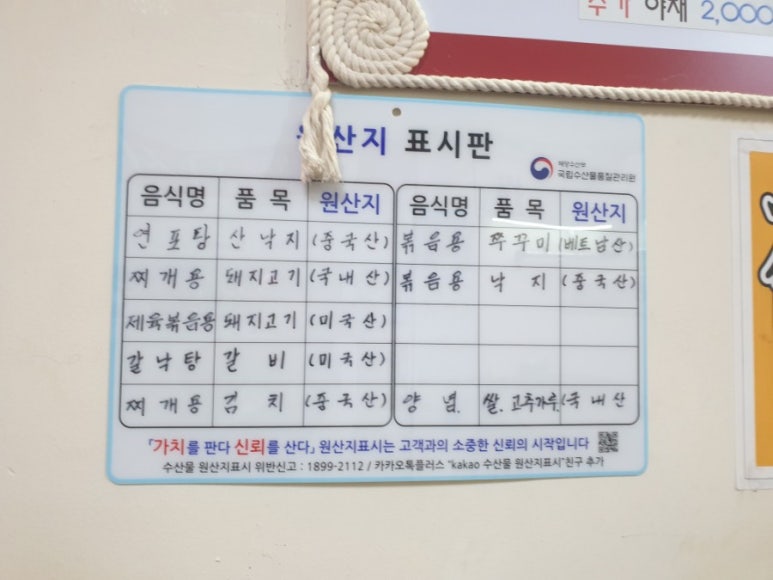 추가 야채 2,000
원산지 표시판
해양수산부
국립수산물품질관리원
음식명 품목 원산지
연포탕 산낙지 (중국산)
찌개용 돼지고기 (국내산)
제육볶음용 돼지고기 (미국산)
갈낙탕 갈비 (미국산)
찌개용 김치 (중국산)
음식명 품목 원산지
볶음용 쭈꾸미 (베트남산)
볶음용 낙지 (중국산)
양념. 쌀. 고추가루. (국내산
「가치를 판다 신뢰를 산다」 원산지표시는 고객과의 소중한 신뢰의 시작입니다
수산물 원산지표시 위반신고 : 1899-2112 / 카카오톡플러스 "kakao 수산물 원산지표시"친구 추가